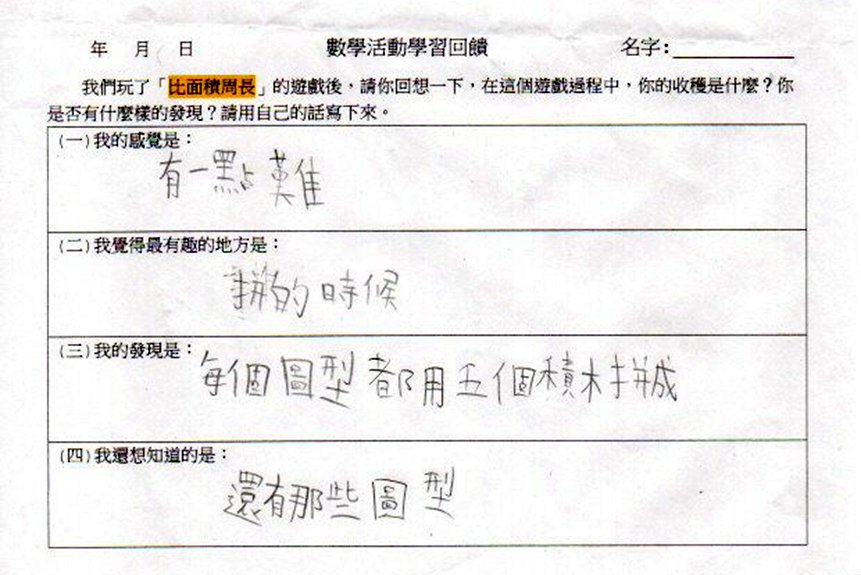 年 月 日 數學活動學習回饋 名字：
我們玩了「比面積周長」的遊戲後，請你回想一下，在這個遊戲過程中，你的收穫是什麼？你
是否有什麼樣的發現？請用自己的話寫下來。
(一)我的感覺是：
有一點難
(二)我覺得最有趣的地方是：
拼的時候
(三)我的發現是：
每個圖型都用五個積木拼成
(四)我還想知道的是：
還有那些圖型